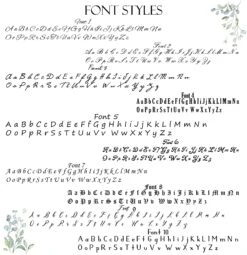 FONT STYLES
Font 1
AaBbCcDdEeFfGgHhIiJjKkLlMmNn
OoPpRrSsTtUuVv WwXxYyZz
Font 2
AaBbCcDdEeFfGgHhIiJjKkLlMmNn
OoPpRrSsTtUuVv WwXxYyZz
Font 3
AaBbCcDdEeFfGgHhIiJjKkLlMmNn
OoPpRrSsTtUuVv WwXxYyZz
Font 4
AaBbCcDdEeFfGgHhIiJjKkLlMmNn
OoPpRrSsTtUuVv WwXxYyZz
Font 5
AaBbCcDdEeFfGgHhIiJjKkLlMmNn
OoPpRrSsTtUuVv WwXxYyZz
Font 6
AaBbCcDdEeFfGgHhIiJjKkLlMmNn
OoPpRrSsTtUuVv WwXxYyZz
Font 7
AaBbCcDdEeFfGgHhIiJjKkLlMmNn
OoPpRrSsTtUuVv WwXxYyZz
Font 8
AaBbCcDdEeFfGgHhIiJjKkLlMmNn
OoPpRrSsTtUuVv WwXxYyZz
Font 9
AaBbCcDdEeFfGgHhIiJjKkLlMmNn
OoPpRrSsTtUuVv WwXxYyZz
Font 10
AaBbCcDdEeFfGgHhIiJjKkLlMmNn
OoPpRrSsTtUuVv WwXxYyZz